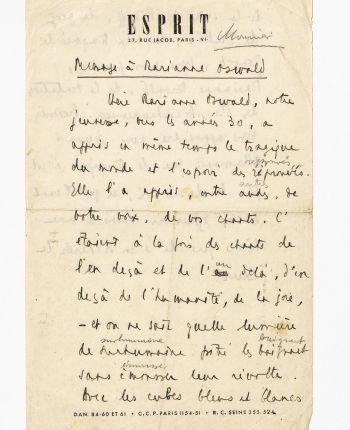 ESPRIT
27, RUE JACOB, PARIS-VIe
Mounier
Message à Marianne Oswald
Chère Marianne Oswald, notre
jeunesse, vers les années 30, a
appris en même temps le tragique
du monde et l'espoir des réprouvés
réprouvés
Elle l'a appris, entre autres, de
autres
votre voix, de vos chants. C'
étaient à la fois des chants de
l'en deçà et de l'au delà, d'un
un
deçà de l'humanité, de la joie,
- et on ne sait quelle lumière
surhumaine
baignant
de surhumaine les baignait
sans émousser leur révolte.
émousser
Avec les aubes bleues et blanes
DAN. 84-60 ET 61 • C.C.P. PARIS 1154-51 • R.C. SEINE 355.524